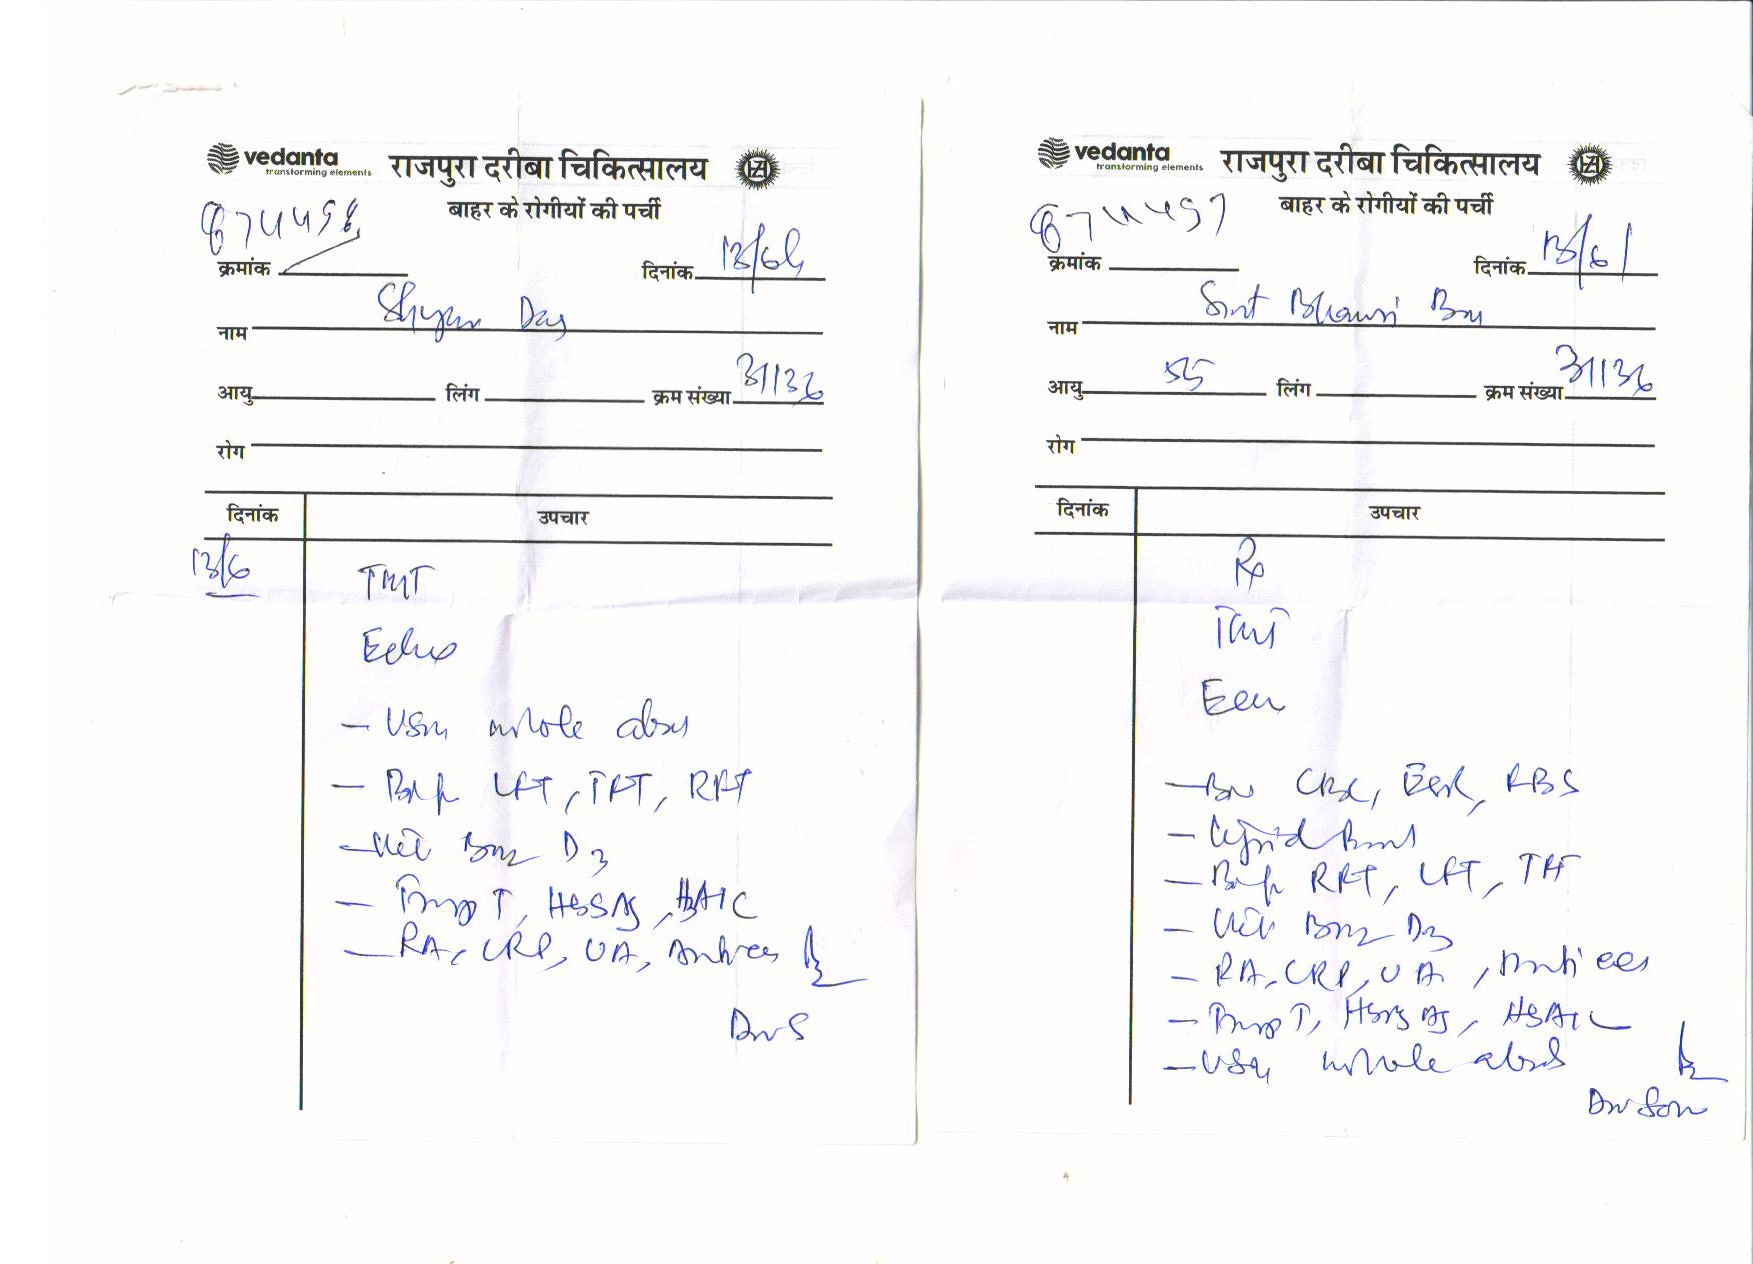 vedanta
transforming elements
राजपुरा दरीबा चिकित्सालय
बाहर के रोगीयों की पर्ची
क्रमांक
दिनांक
नाम Shyam Das
आयु लिंग क्रम संख्या 31136
रोग
दिनांक उपचार
13/6 TMT
Echo
- USG whole abd
- LFT, TFT, RFT
- Vit B12 D3
- Trop T, HBSAg, HBA1C
- RA, CRP, UA, Anti ccp
vedanta
transforming elements
राजपुरा दरीबा चिकित्सालय
बाहर के रोगीयों की पर्ची
874457
क्रमांक
दिनांक 13/6/
नाम Smt Bhanri
आयु 55 लिंग क्रम संख्या 31136
रोग
दिनांक उपचार
Rx
TMT
- CBC, ESR, RBS
- RFT, LFT, TFT
- Vit B12 D3
- RA, CRP, UA, Anti ccp
- Trop T, HBSAg, HBA1C
- USG whole abd